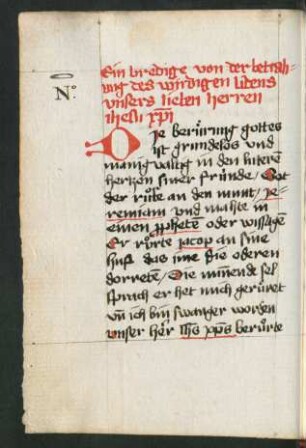 Ein bredige von der betrah
ung des wirdigen lidens
unsers lieben herren
ihesu xpi
No
Die berürung gottes
ist grundelos und
manigvaltig in den lutern
hertzen siner fründe / Got
der rurte an den munt / Je
remiam und mahte in
einen ppheten oder wissagen
Er rürte jacop an sine
huf das ime die oderen
dorreten / Die minnend sel
sprich er het mich gerüret
un ich bin swanger worden
unser her ihs xps berürte